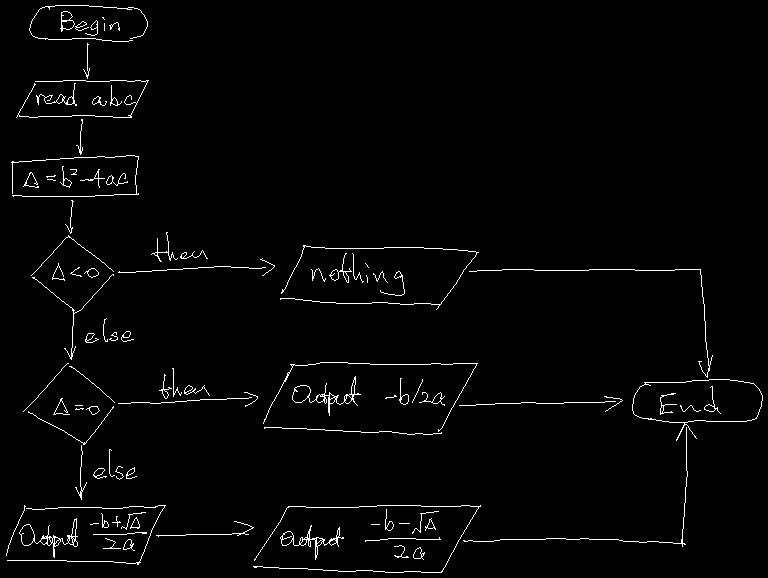 Begin
read abc
Δ=b²-4ac
Δ<0
then
nothing
else
Δ=0
then
Output -b/2a
End
else
Output (-b+√Δ)/2a
output (-b-√Δ)/2a